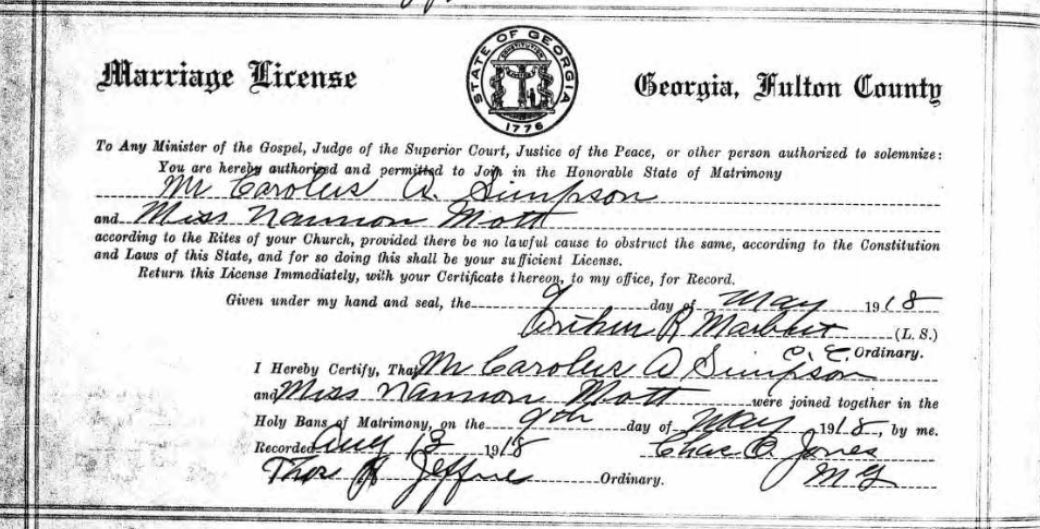 Marriage License
STATE OF GEORGIA
CONSTITUTION
1776
Georgia, Fulton County
To Any Minister of the Gospel, Judge of the Superior Court, Justice of the Peace, or other person authorized to solemnize:
You are hereby authorized and permitted to Join in the Honorable State of Matrimony
Mr Carolus A. Simpson
and Miss Nannon Mott
according to the Rites of your Church, provided there be no lawful cause to obstruct the same, according to the Constitution
and Laws of this State, and for so doing this shall be your sufficient License.
Return this License Immediately, with your Certificate thereon, to my office, for Record.
Given under my hand and seal, the 9 day of May 1918
Arthur R (L. S.)
C. C. Ordinary.
I Hereby Certify, That Mr Carolus A Simpson
and Miss Nannon Mott were joined together in the
Holy Bans of Matrimony, on the 9th day of May 1918, by me.
Recorded Aug 13 1918 Chas O. Jones
Thos H Jeffries Ordinary. M G